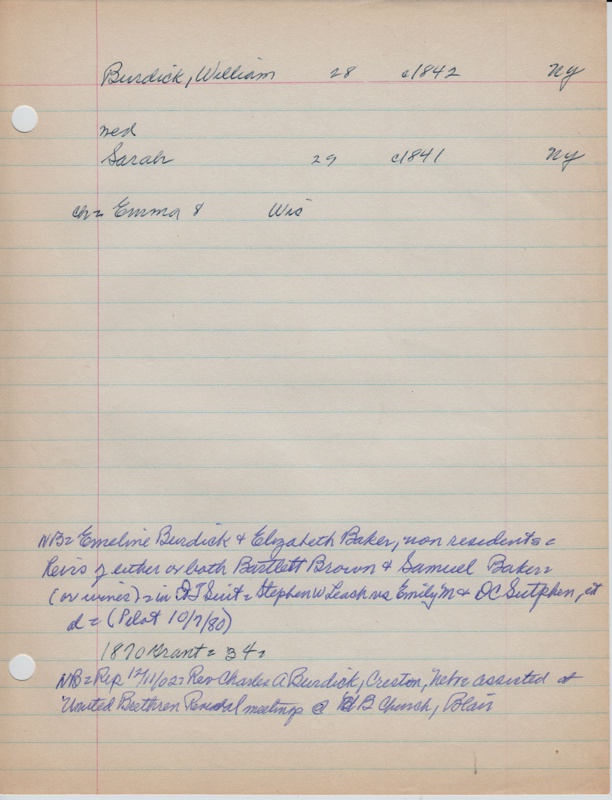 Burdick, William 28 c1842 Ny
wed
Sarah 29 c1841 Ny
ch= Emma 8 Wis
NB= Emeline Burdick & Elizabeth Baker, non residents =
heirs of either or both Bartlett Brown & Samuel Baker=
(or wives) = in QT Suit = Stephen W Leach vs Emily M & DC Sutphen, et
al = (Pilot 10/7/80)
1870 Grant = 34=
NB= Rep 12/11/02= Rev Charles A Burdick, Creston, Nebr= assisted at
United Brethren Revival meetings @ UB Church, Blair